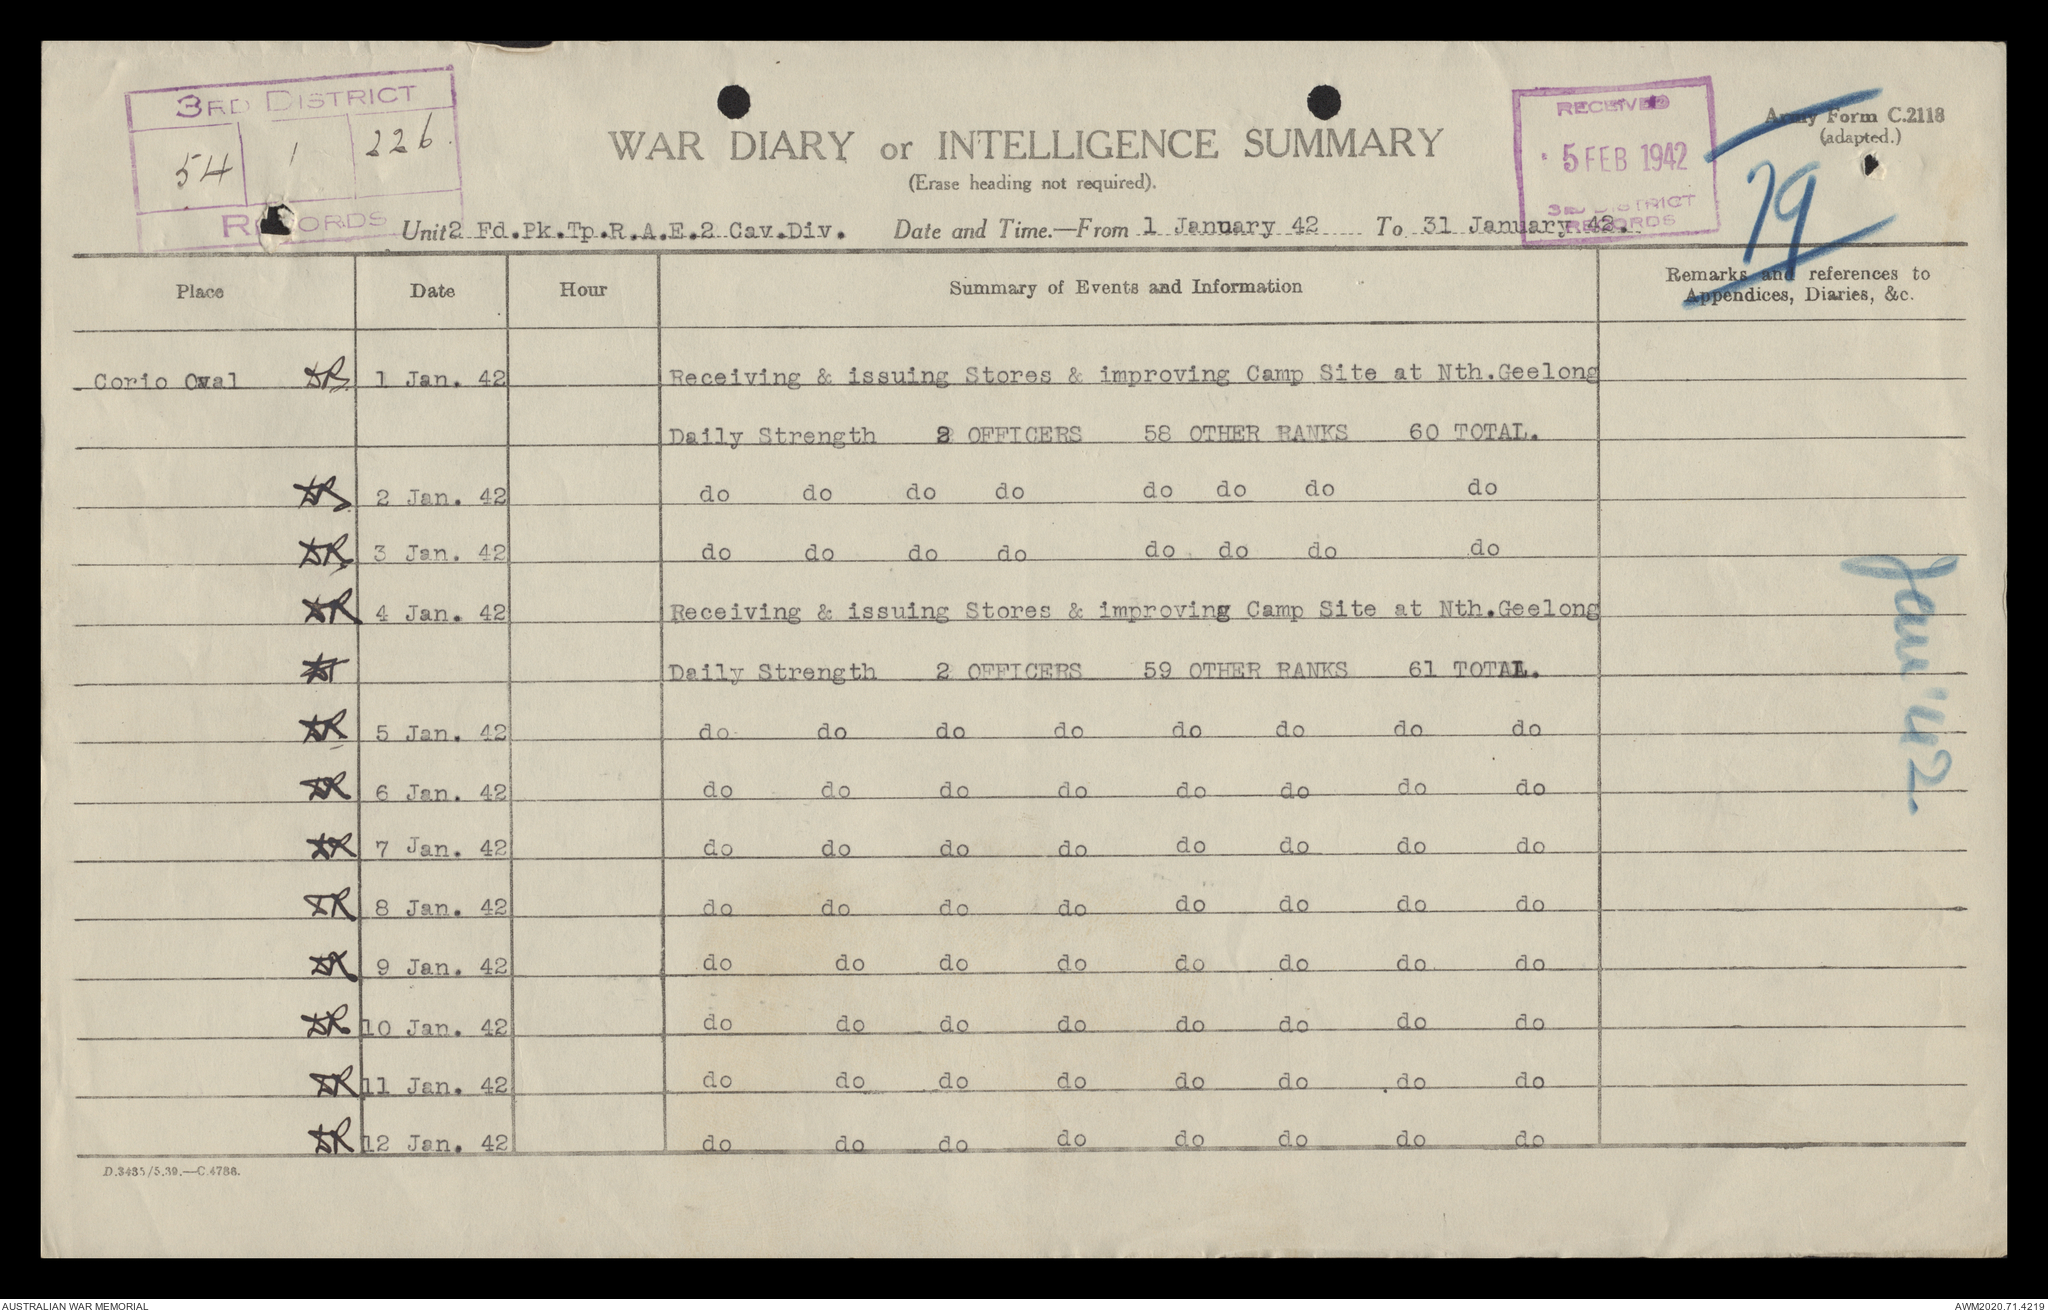 3RD DISTRICT
54 1 226.
RECORDS
RECEIVED
5 FEB 1942
3RD DISTRICT
RECORDS
Army Form C.2118
(adapted.)
79
WAR DIARY or INTELLIGENCE SUMMARY
(Erase heading not required).
Unit 2 Fd.Pk.Tp.R.A.E.2 Cav.Div. Date and Time.—From 1 January 42 To 31 January 42.
Place Date Hour Summary of Events and Information Remarks and references to
Appendices, Diaries, &c.
Corio Oval DR 1 Jan. 42 Receiving & issuing Stores & improving Camp Site at Nth.Geelong
Daily Strength 2 OFFICERS 58 OTHER RANKS 60 TOTAL.
DR 2 Jan. 42 do do do do do do do do
DR 3 Jan. 42 do do do do do do do do
DR 4 Jan. 42 Receiving & issuing Stores & improving Camp Site at Nth.Geelong
Daily Strength 2 OFFICERS 59 OTHER RANKS 61 TOTAL.
DR 5 Jan. 42 do do do do do do do do
DR 6 Jan. 42 do do do do do do do do
DR 7 Jan. 42 do do do do do do do do
DR 8 Jan. 42 do do do do do do do do
DR 9 Jan. 42 do do do do do do do do
DR 10 Jan. 42 do do do do do do do do
DR 11 Jan. 42 do do do do do do do do
DR 12 Jan. 42 do do do do do do do do
Jan '42.
D.3435/5.39.—C.4788.
AUSTRALIAN WAR MEMORIAL
AWM2020.71.4219